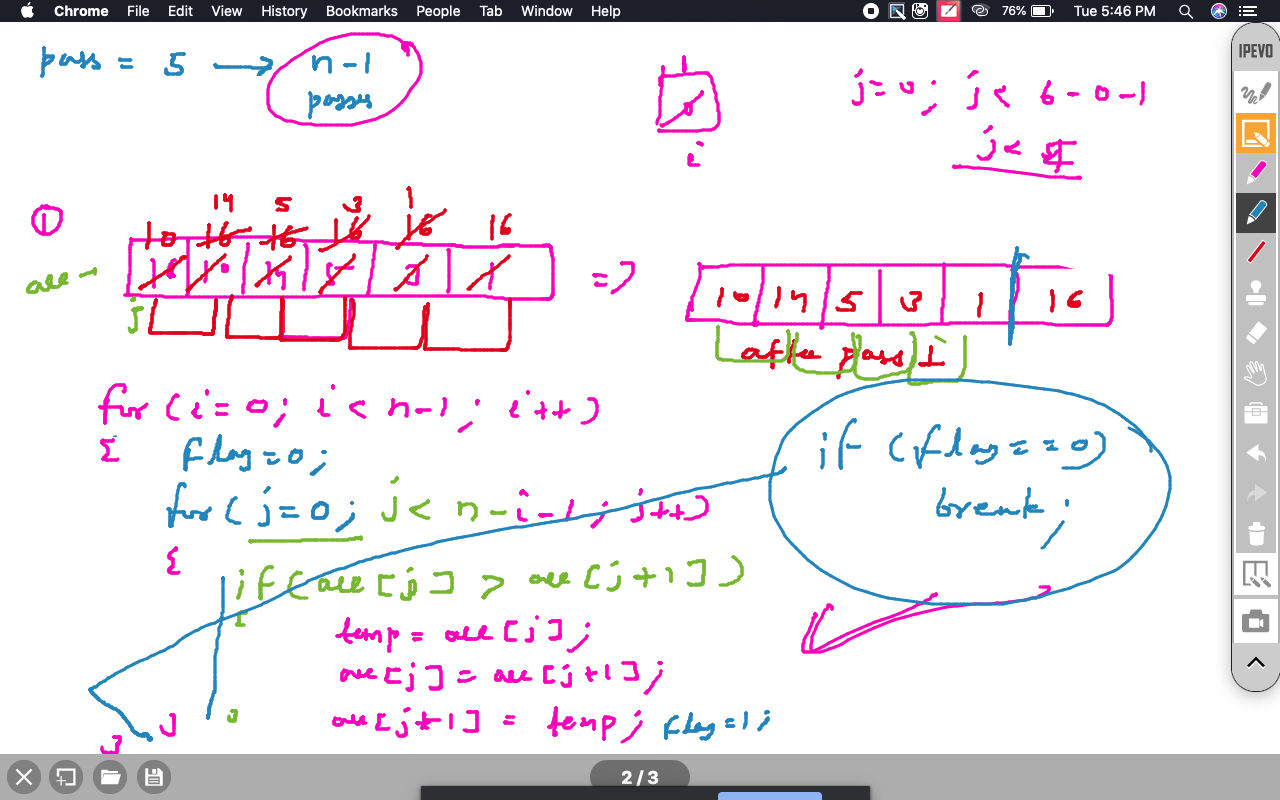 Chrome File Edit View History Bookmarks People Tab Window Help 76% Tue 5:46 PM
IPEVO
pass = 5 → n-1
passes
1
0
i
j=0; j< 6-0-1
j< 5
1
14 5 3 1
10 16 16 16 16 16
arr →
j
=>
10 14 5 3 1 16
after pass 1
for (i=0; i<n-1; i++)
{ flag=0;
for (j=0; j< n-i-1; j++)
{
if (arr[j] > arr[j+1])
{
temp = arr[j];
arr[j] = arr[j+1];
arr[j+1] = temp; flag=1;
}
}
}
if (flag==0)
break;
2 / 3